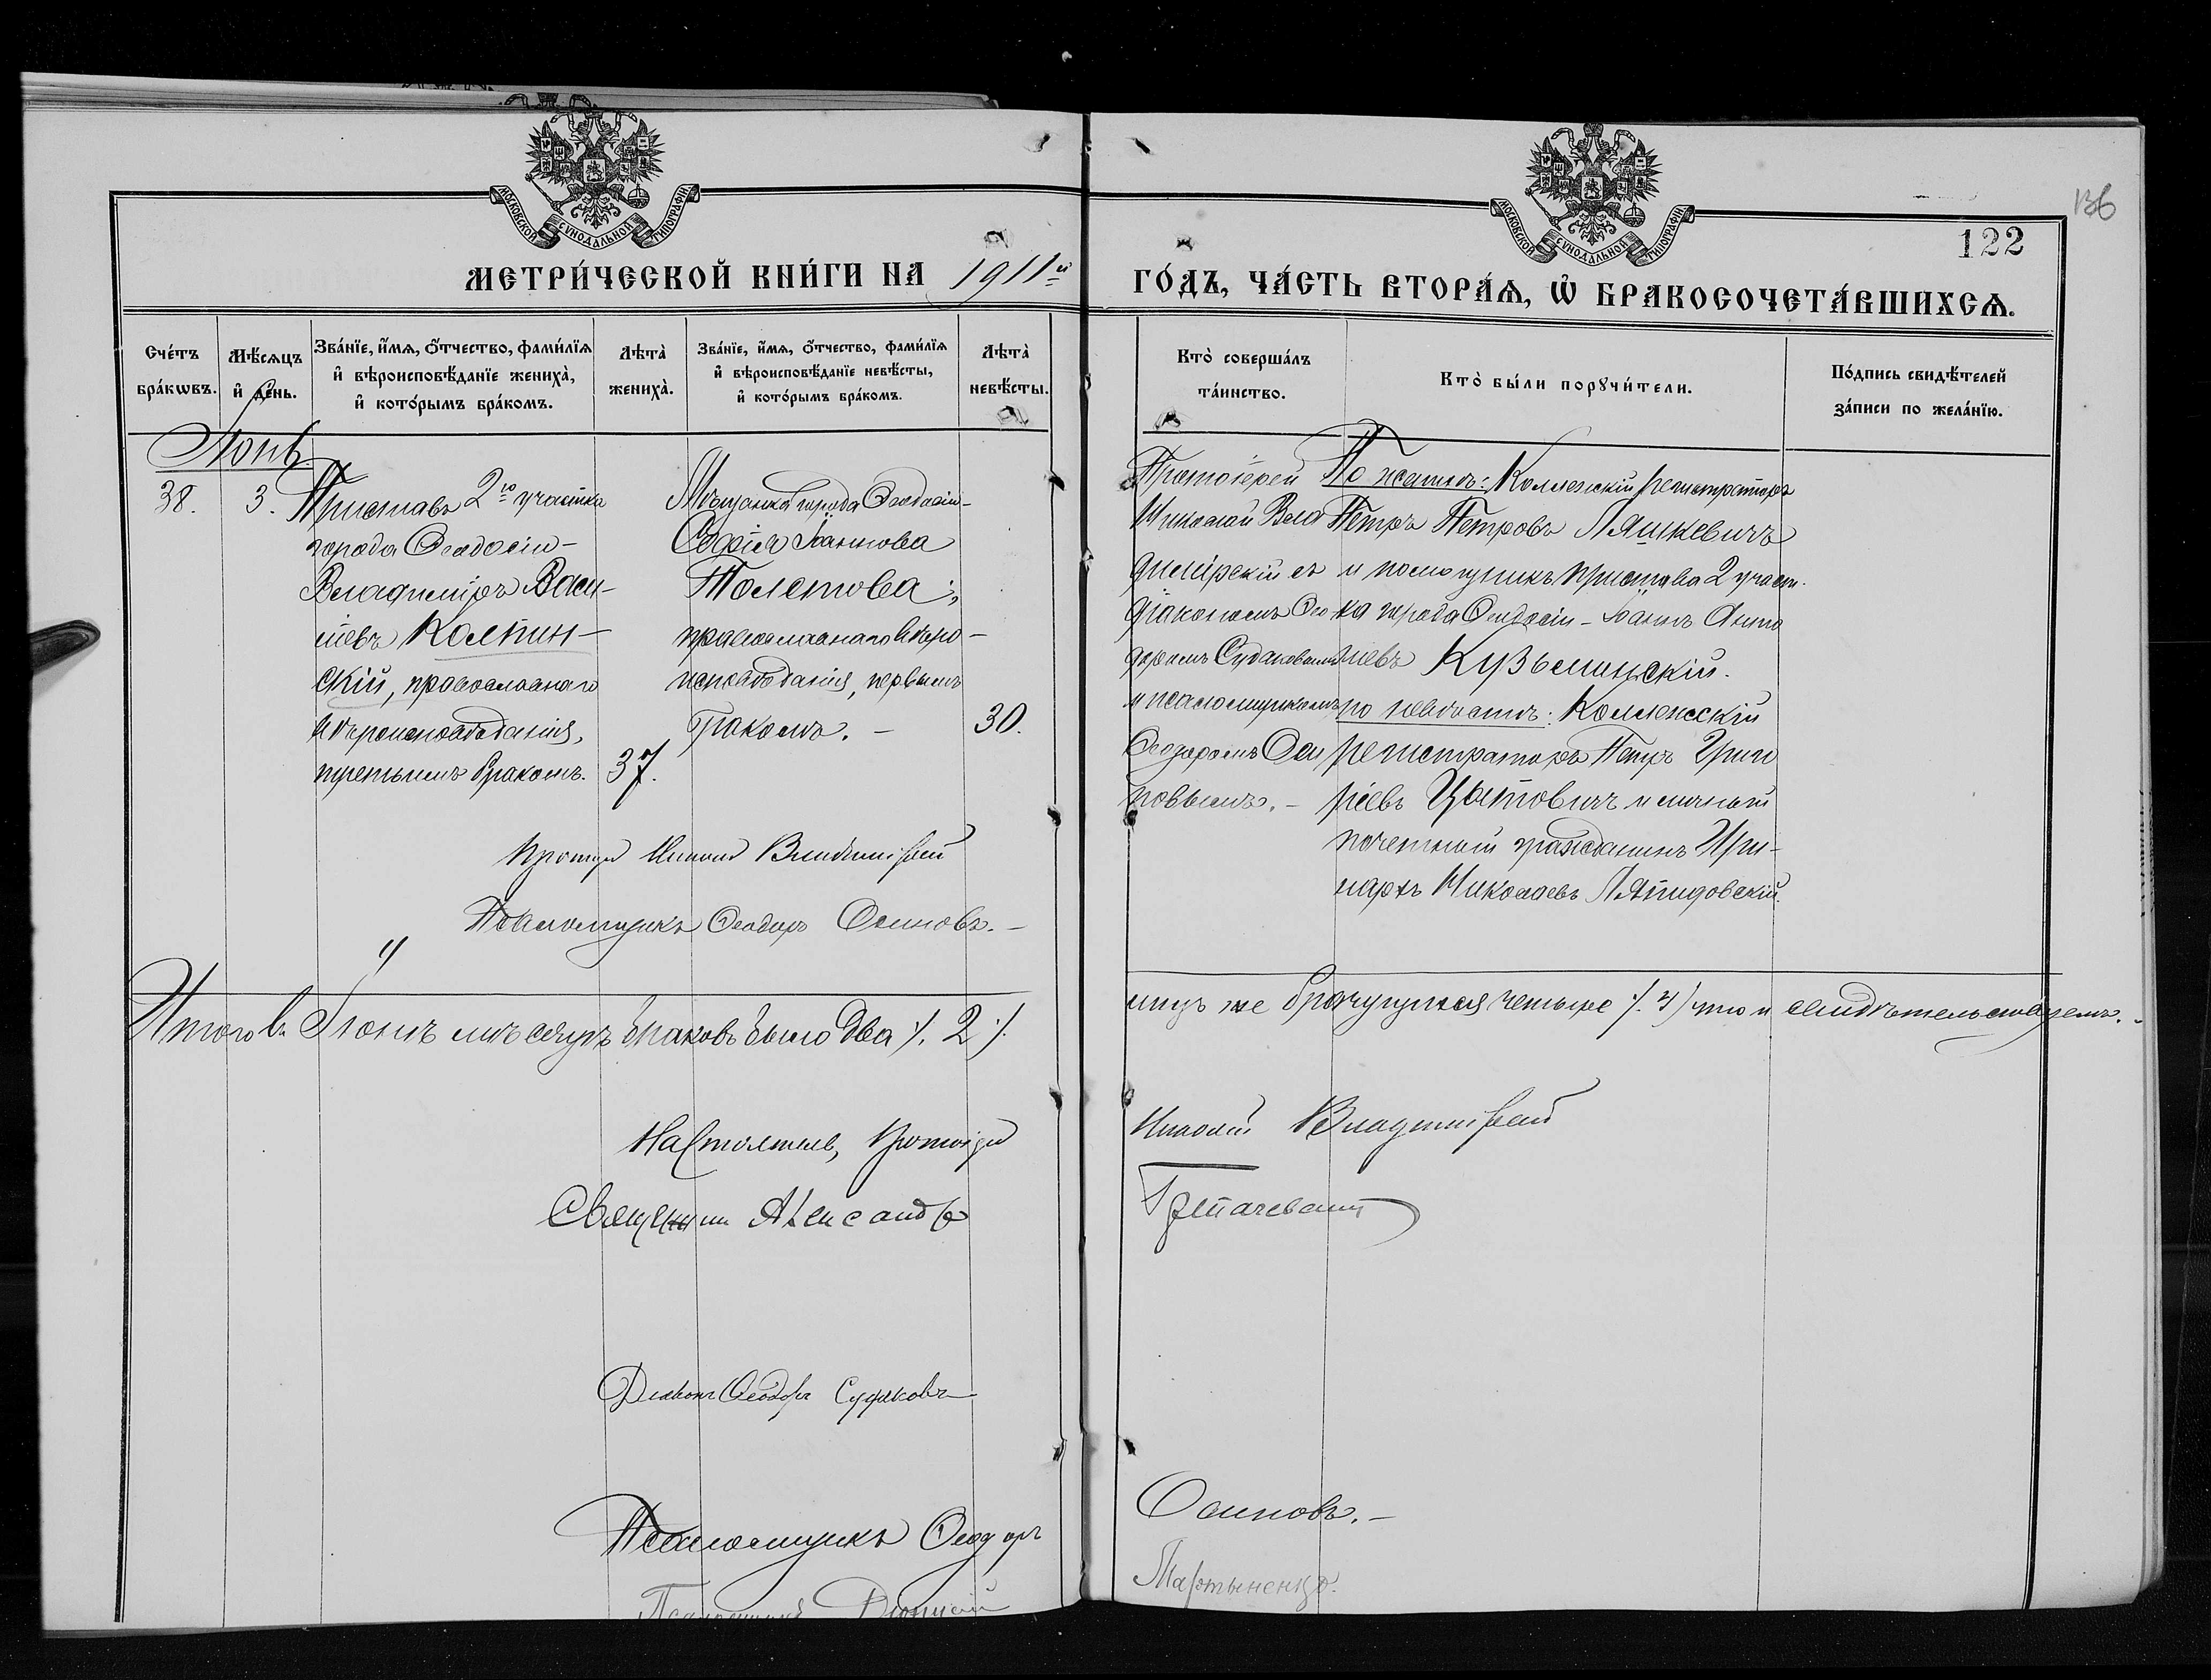 МОСКОВСКОЙ СѴНОДАЛЬНОЙ ТИПОГРАФІИ
МОСКОВСКОЙ СѴНОДАЛЬНОЙ ТИПОГРАФІИ
136
122
МЕТРИ́ЧЕСКОЙ КНИ́ГИ НА 1911й ГО́ДЪ, ЧА́СТЬ ВТОРА́Ѧ, Ѡ БРАКОСОЧЕТА́ВШИХСѦ.
Сче́тъ бра́кѡвъ.
Мѣ́сѧцъ и де́нь.
Зва́нїе, и́мѧ, о́тчество, фами́лїѧ и вѣроисповѣ́данїе жениха̀, и кото́рымъ бра́комъ.
Лѣта̀ жениха̀.
Зва́нїе, и́мѧ, о́тчество, фами́лїѧ и вѣроисповѣ́данїе невѣ́сты, и кото́рымъ бра́комъ.
Лѣта̀ невѣ́сты.
Кто̀ соверша́лъ та́инство.
Кто̀ бы́ли порꙋчи́тели.
По́дпись свидѣ́телей за́писи по жела́нїю.
Іюнь.
38.
3.
Приставъ 2го участка
города Ѳеодосіи –
Владиміръ Васи-
ліевъ Колпин-
скій, православнаго
вѣроисповѣданія,
третьимъ бракомъ.
37.
Мѣщанка города Ѳеодосіи –
Софія Іоаннова
Полетова,
православнаго вѣро-
исповѣданія, первымъ
бракомъ. –
30.
Протоіерей
Николай Вла
димірскій съ
діакономъ Ѳео
доромъ Судаковымъ
и псаломщикомъ
Ѳеодоромъ Оси
повымъ. –
По женихѣ: Коллежскій регистраторъ
Петръ Петровъ Ляшкевичъ
и помощникъ пристава 2 участ-
ка города Ѳеодосіи – Іоаннъ
Кузьминскій.
по невѣстѣ: Коллежскій
регистраторъ Петръ Григо
ріевъ и личный
почетный гражданинъ
Николаевъ Лапидовскій.
Протоіерей Николай Владимірскій
Псаломщикъ Ѳеодоръ Осиповъ. –
Итого въ Іюнѣ мѣсяцѣ браковъ было два /. 2 /. лицъ же брачущихся четыре /. 4) что и свидѣтельствуемъ. –
Настоятель, Протоіерей Николай Владимірскій
Священникъ Александръ
Діаконъ Ѳеодоръ Судаковъ
Псаломщикъ Ѳеодоръ Осиповъ. –
Псаломщикъ Діонисій Мартыненко.